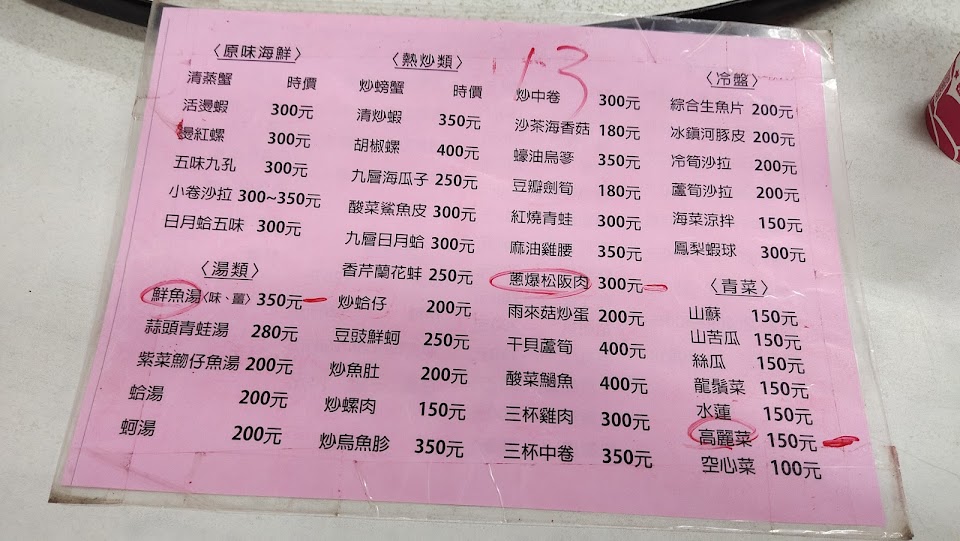 〈原味海鮮〉
清蒸蟹 時價
活燙蝦 300元
燙紅螺 300元
五味九孔 300元
小卷沙拉 300~350元
日月蛤五味 300元
〈湯類〉
鮮魚湯〈味、薑〉 350元
蒜頭青蛙湯 280元
紫菜魩仔魚湯 200元
蛤湯 200元
蚵湯 200元
〈熱炒類〉
炒螃蟹 時價
清炒蝦 350元
胡椒螺 400元
九層海瓜子 250元
酸菜鯊魚皮 300元
九層日月蛤 300元
香芹蘭花蚌 250元
炒蛤仔 200元
豆豉鮮蚵 250元
炒魚肚 200元
炒螺肉 150元
炒烏魚胗 350元
炒中卷 300元
沙茶海香菇 180元
蠔油烏篸 350元
豆瓣劍筍 180元
紅燒青蛙 300元
麻油雞腰 350元
蔥爆松阪肉 300元
雨來菇炒蛋 200元
干貝蘆筍 400元
酸菜鰻魚 400元
三杯雞肉 300元
三杯中卷 350元
〈冷盤〉
綜合生魚片 200元
冰鎮河豚皮 200元
冷筍沙拉 200元
蘆筍沙拉 200元
海菜涼拌 150元
鳳梨蝦球 300元
〈青菜〉
山蘇 150元
山苦瓜 150元
絲瓜 150元
龍鬚菜 150元
水蓮 150元
高麗菜 150元
空心菜 100元